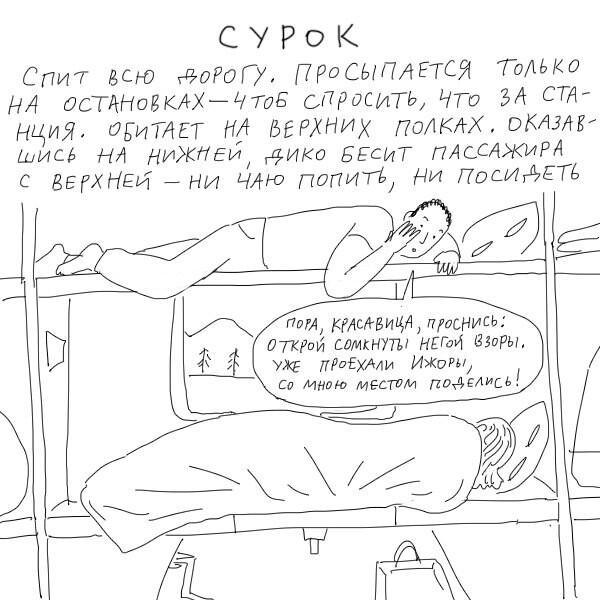 СУРОК
СПИТ ВСЮ ДОРОГУ. ПРОСЫПАЕТСЯ ТОЛЬКО
НА ОСТАНОВКАХ — ЧТОБ СПРОСИТЬ, ЧТО ЗА СТА-
НЦИЯ. ОБИТАЕТ НА ВЕРХНИХ ПОЛКАХ. ОКАЗАВ-
ШИСЬ НА НИЖНЕЙ, ДИКО БЕСИТ ПАССАЖИРА
С ВЕРХНЕЙ — НИ ЧАЮ ПОПИТЬ, НИ ПОСИДЕТЬ
ПОРА, КРАСАВИЦА, ПРОСНИСЬ:
ОТКРОЙ СОМКНУТЫ НЕГОЙ ВЗОРЫ.
УЖЕ ПРОЕХАЛИ ИЖОРЫ,
СО МНОЮ МЕСТОМ ПОДЕЛИСЬ!